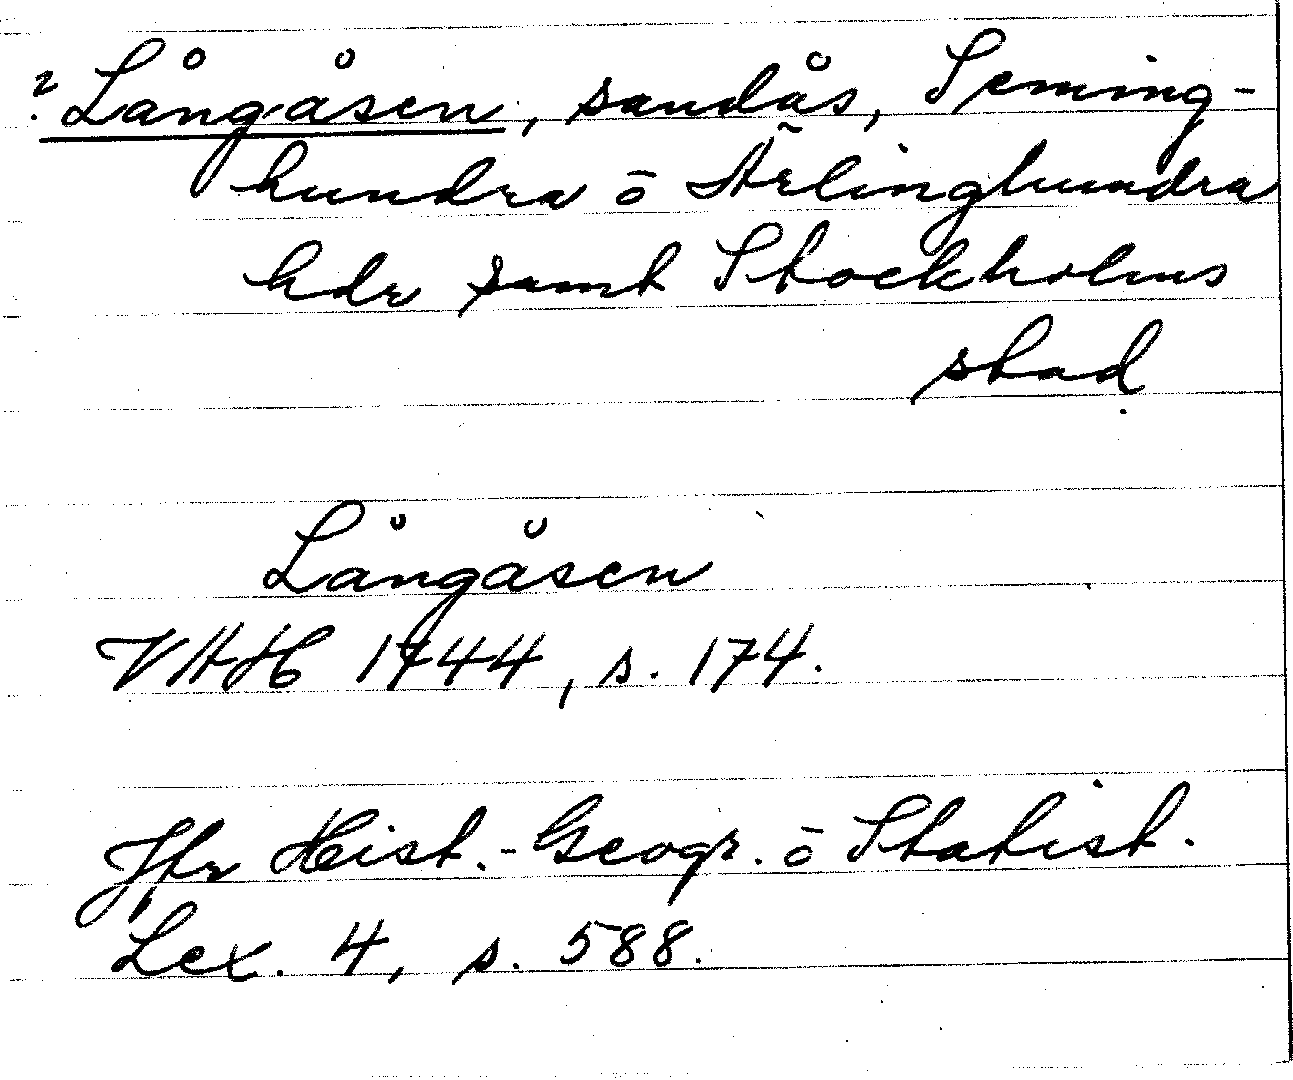 ? Långåsen, sandås, Seming-
hundra ō Ärlinghundra
hdr samt Stockholms
stad
Långåsen
VAH 1744, s. 174.
Jfr Hist.-Geogr. ō Statist.
Lex. 4, s. 588.